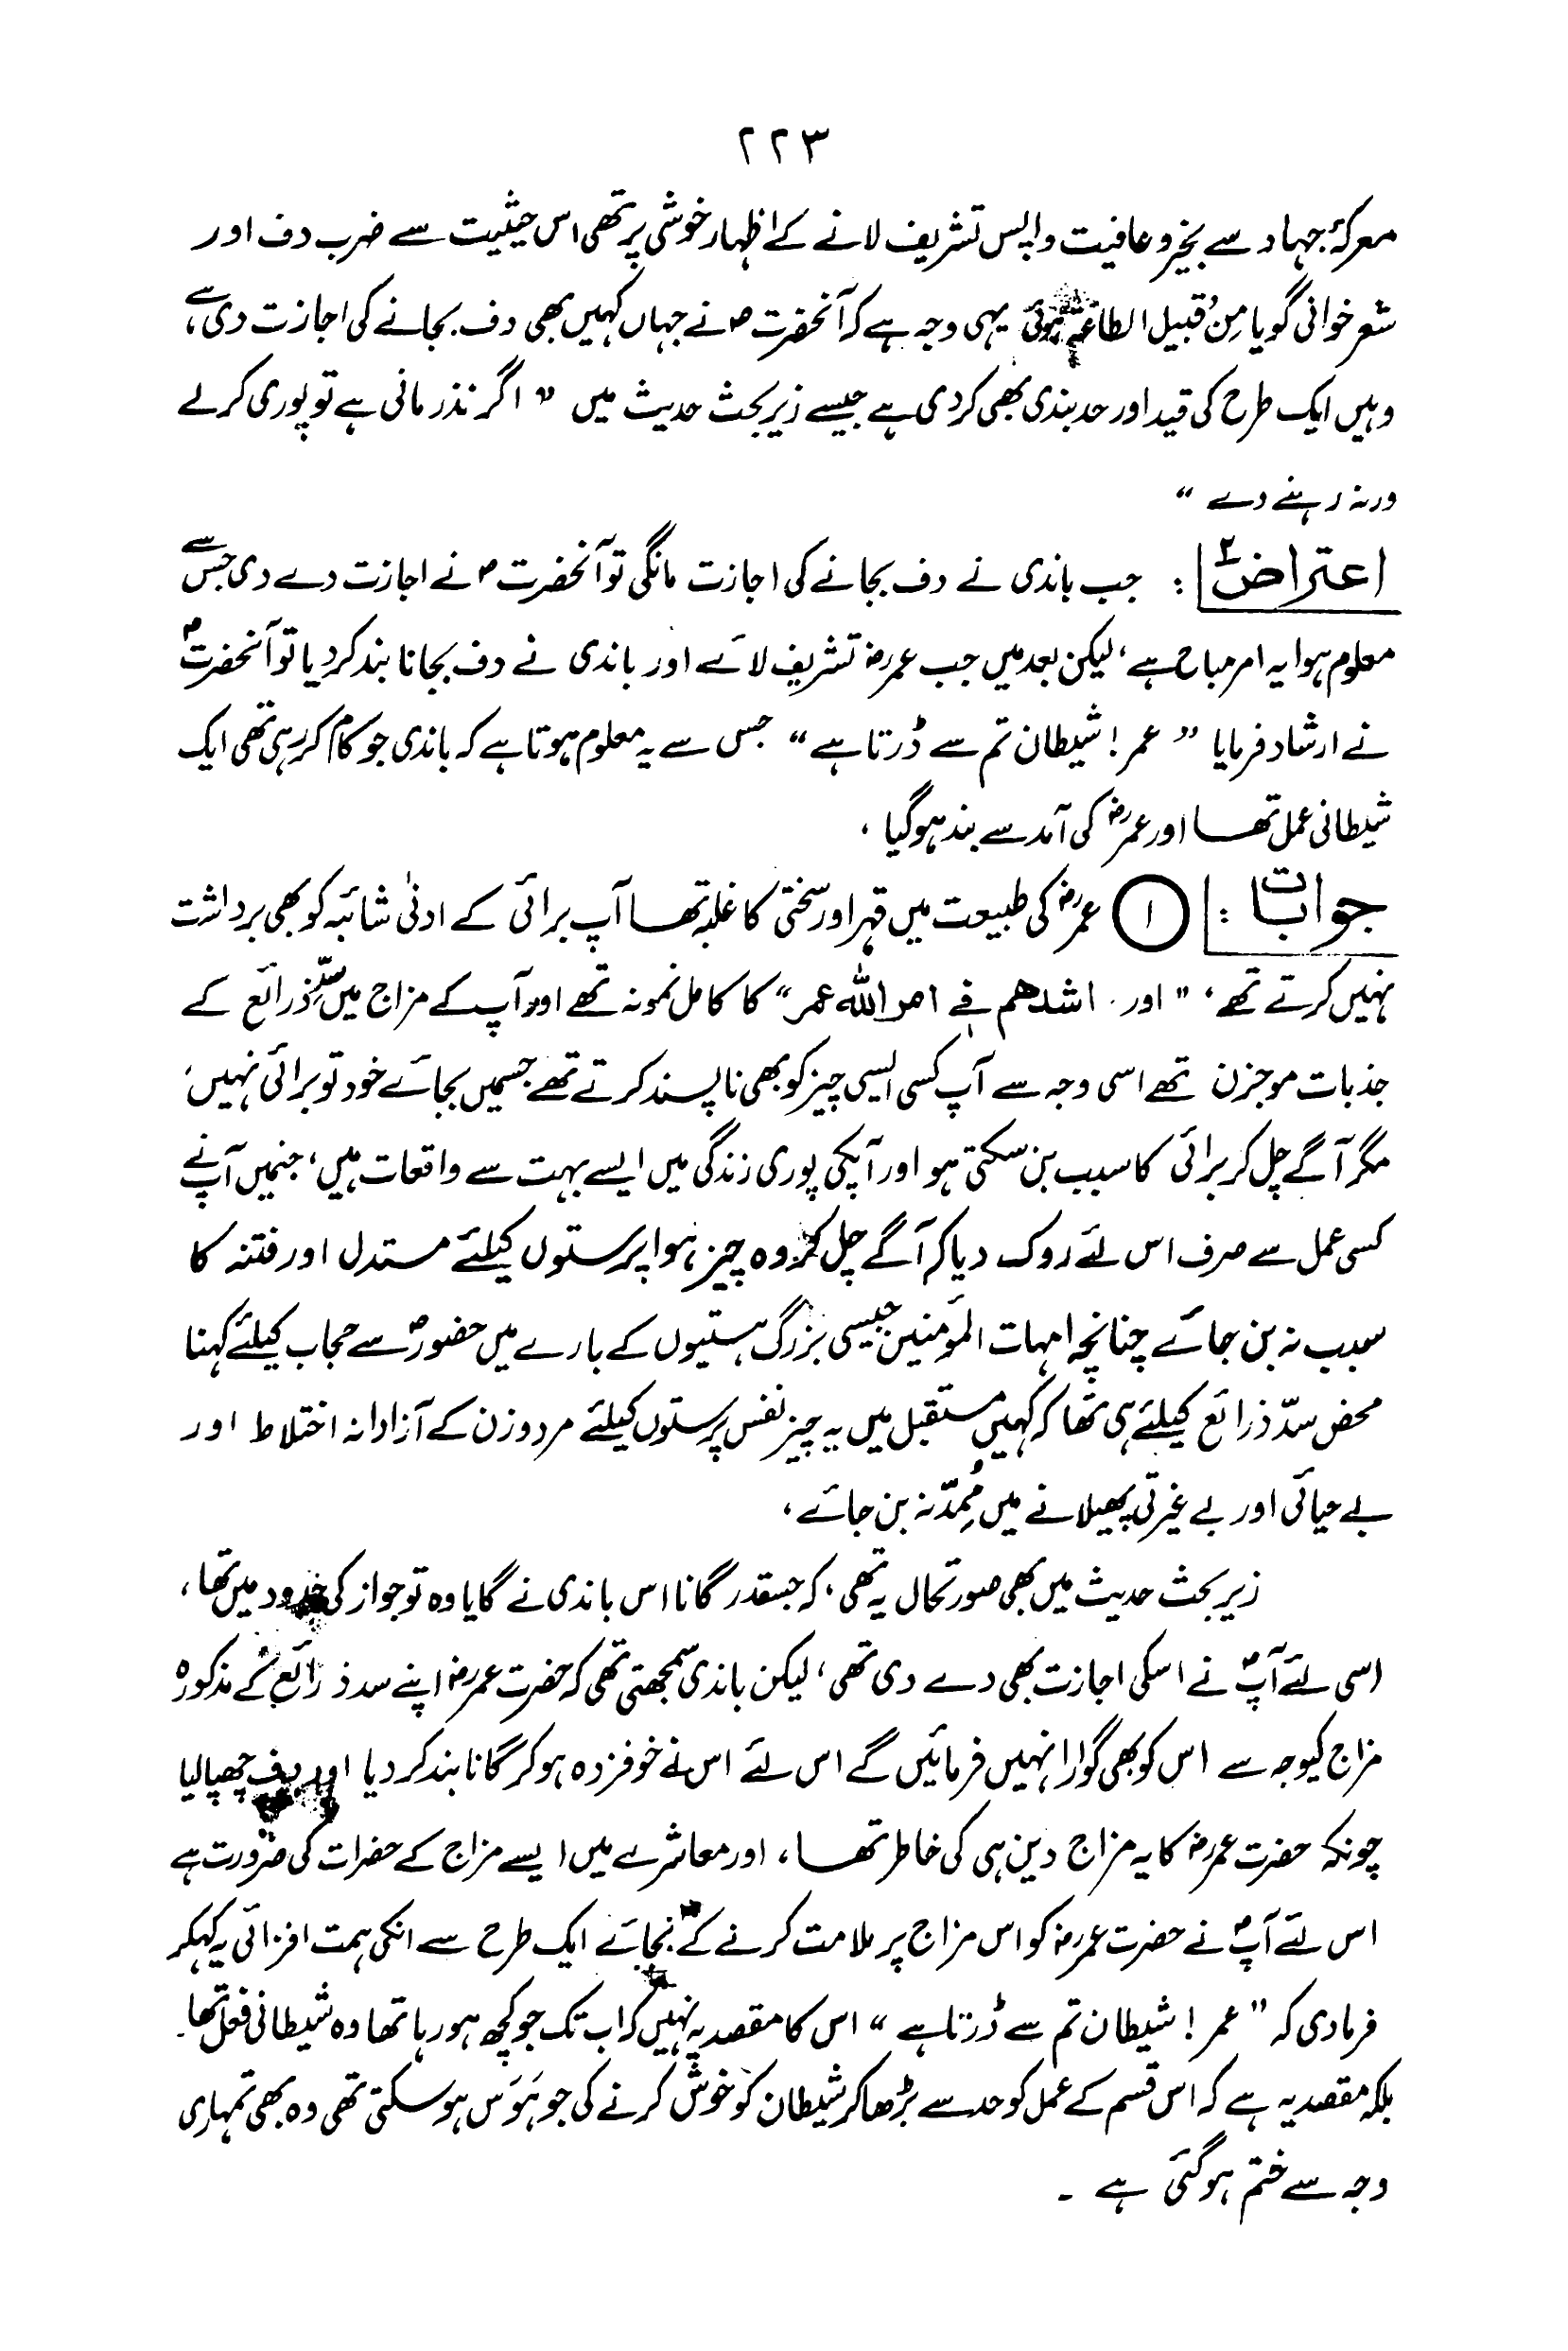 ۲۲۳
معرکۂ جہاد سے بخیر و عافیت واپس تشریف لانے کے اظہار خوشی پر تھی اس حیثیت سے ضرب دف اور
شعر خوانی گویا مِنْ قبیل الطاعۃ ہوئی یہی وجہ ہے کہ آنحضرت ؐ نے جہاں کہیں بھی دف بجانے کی اجازت دی ہے،
وہیں ایک طرح کی قید اور حد بندی بھی کردی ہے جیسے زیر بحث حدیث میں ” اگر نذر مانی ہے تو پوری کرلے
ورنہ رہنے دے “
اعتراض۲ : جب باندی نے دف بجانے کی اجازت مانگی تو آنحضرت ؐ نے اجازت دے دی جس سے
معلوم ہوا یہ امر مباح ہے، لیکن بعد میں جب عمرؓ تشریف لائے اور باندی نے دف بجانا بند کردیا تو آنحضرت ؐ
نے ارشاد فرمایا ” عمر ! شیطان تم سے ڈرتا ہے “ جس سے یہ معلوم ہوتا ہے کہ باندی جو کام کر رہی تھی ایک
شیطانی عمل تھا اور عمرؓ کی آمد سے بند ہوگیا ،
جوابات : ① عمرؓ کی طبیعت میں قہر اور سختی کا غلبہ تھا آپ برائی کے ادنیٰ شائبہ کو بھی برداشت
نہیں کرتے تھے، ” اور اشدھم فی امر اللہ عمر “ کا کامل نمونہ تھے اور آپ کے مزاج میں سدِّ ذرائع کے
جذبات موجزن تھے اسی وجہ سے آپ کسی ایسی چیز کو بھی ناپسند کرتے تھے جسمیں بجائے خود تو برائی نہیں،
مگر آگے چل کر برائی کا سبب بن سکتی ہو اور آپکی پوری زندگی میں ایسے بہت سے واقعات ہیں، جنمیں آپنے
کسی عمل سے صرف اس لئے روک دیا کہ آگے چل کر وہ چیز ہوا پرستوں کیلئے مستدل اور فتنہ کا
سبب نہ بن جائے چنانچہ امہات المؤمنین جیسی بزرگ ہستیوں کے بارے میں حضورؐ سے حجاب کیلئے کہنا
محض سدّ ذرائع کیلئے ہی تھا کہ کہیں مستقبل میں یہ چیز نفس پرستوں کیلئے مرد و زن کے آزادانہ اختلاط اور
بے حیائی اور بے غیرتی پھیلانے میں مُمِدّ نہ بن جائے ،
زیر بحث حدیث میں بھی صورتحال یہ تھی، کہ جسقدر گانا اس باندی نے گایا وہ تو جواز کی حدود میں تھا ،
اسی لئے آپؐ نے اسکی اجازت بھی دے دی تھی، لیکن باندی سمجھتی تھی کہ حضرت عمرؓ اپنے سد ذرائع کے مذکورہ
مزاج کیوجہ سے اس کو بھی گوارا نہیں فرمائیں گے اس لئے اس نے خوفزدہ ہوکر گانا بند کر دیا اور دف چھپالیا
چونکہ حضرت عمرؓ کا یہ مزاج دین ہی کی خاطر تھا ، اور معاشرے میں ایسے مزاج کے حضرات کی ضرورت ہے
اس لئے آپؐ نے حضرت عمرؓ کو اس مزاج پر ملامت کرنے کے بجائے ایک طرح سے انکی ہمت افزائی یہ کہکر
فرمادی کہ ” عمر ! شیطان تم سے ڈرتا ہے “ اس کا مقصد یہ نہیں کہ اب تک جو کچھ ہو رہا تھا وہ شیطانی فعل تھا۔
بلکہ مقصد یہ ہے کہ اس قسم کے عمل کو حد سے بڑھا کر شیطان کو خوش کرنے کی جو ہَوَس ہوسکتی تھی وہ بھی تمہاری
وجہ سے ختم ہوگئی ہے ۔